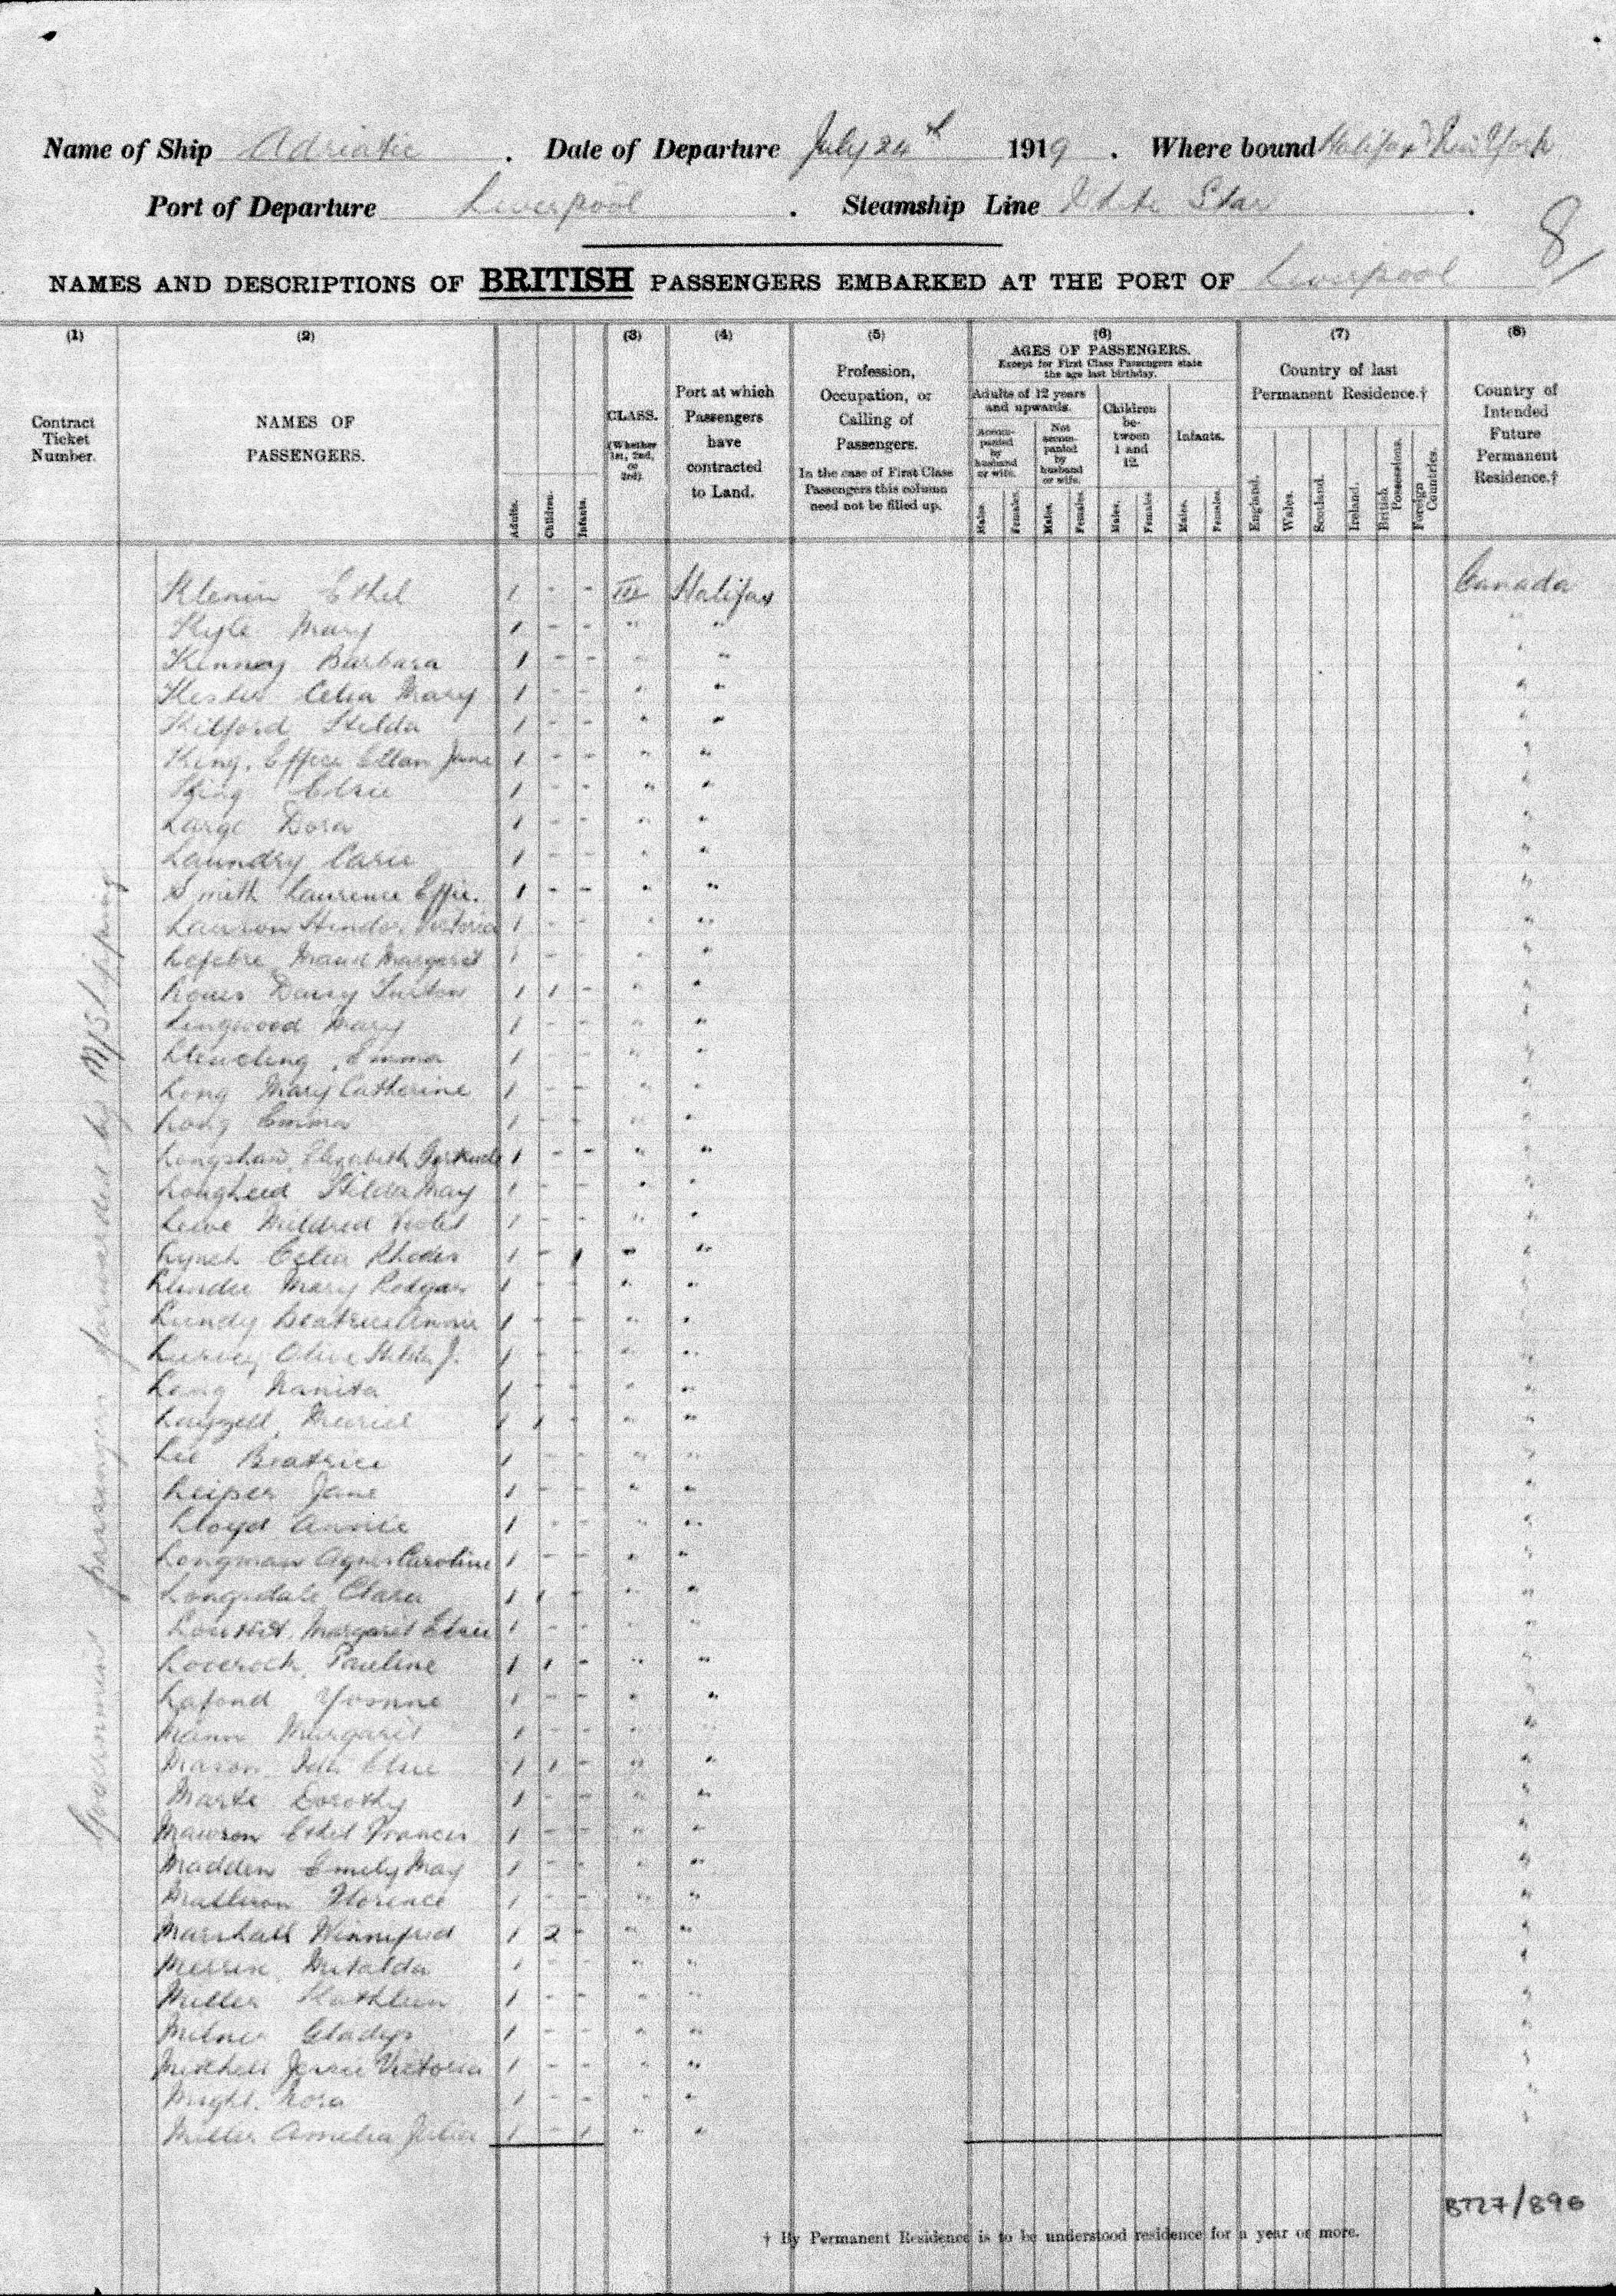 Name of Ship Adriatic . Date of Departure July 24th 1919 . Where bound Halifax & New York
Port of Departure Liverpool . Steamship Line White Star .
8/
NAMES AND DESCRIPTIONS OF BRITISH PASSENGERS EMBARKED AT THE PORT OF Liverpool
(1) Contract Ticket Number.
(2) NAMES OF PASSENGERS.
Adults. Children. Infants.
(3) CLASS. (Whether 1st, 2nd, or 3rd).
(4) Port at which Passengers have contracted to Land.
(5) Profession, Occupation, or Calling of Passengers.
In the case of First Class Passengers this column need not be filled up.
(6) AGES OF PASSENGERS.
Except for First Class Passengers state the age last birthday.
Adults of 12 years and upwards.
Accompanied by husband or wife. Not accompanied by husband or wife.
Children between 1 and 12.
Infants.
Males. Females. Males. Females. Males. Females. Males. Females.
(7) Country of last Permanent Residence.†
England. Wales. Scotland. Ireland. British Possessions. Foreign Countries.
(8) Country of Intended Future Permanent Residence.†
Government passengers forwarded by M/Shipping
Ethel 1 - - III Halifax Canada
Kyle Mary 1 - - " " "
Kenney Barbara 1 - - " " "
Celia Mary 1 - - " " "
Kilford Hilda 1 - - " " "
King, Effie Ellan Jane 1 - - " " "
King Elsie 1 - - " " "
Large Dora 1 - - " " "
Laundry Carie 1 - - " " "
Smith Laurence Effie. 1 - - " " "
Lawson Victoria 1 - - " " "
Lefebre Maud Margaret 1 - - " " "
Daisy 1 1 - " " "
Lingwood Mary 1 - - " " "
Emma 1 - - " " "
Long Mary Catherine 1 - - " " "
Long Emma 1 - - " " "
Longshaw, Elizabeth Gertrude 1 - - " " "
Longheed Hilda May 1 - - " " "
Mildred Violet 1 - - " " "
Lynch Celia Rhodes 1 - 1 " " "
Mary Rodger 1 - - " " "
Lundy Beatrice Annie 1 - - " " "
Olive Hilda J. 1 - - " " "
Lang 1 - - " " "
Layzell, Muriel 1 1 - " " "
Lee Beatrice 1 - - " " "
Leiper Jane 1 - - " " "
Lloyd Annie 1 - - " " "
Longman Agnes Caroline 1 - - " " "
Clara 1 1 - " " "
Louttit, Margaret Elsie 1 - - " " "
Loverock, Pauline 1 1 - " " "
Lafond Yvonne 1 - - " " "
Mann Margaret 1 - - " " "
Mason 1 1 - " " "
Dorothy 1 - - " " "
Mawson Ethel Frances 1 - - " " "
Madden Emily May 1 - - " " "
Florence 1 - - " " "
Marshall Winnifred 1 2 - " " "
1 - - " " "
Miller Kathleen 1 - - " " "
Milner Gladys 1 - - " " "
Mitchell Jessie Victoria 1 - - " " "
1 - - " " "
Miller Amelia Julia 1 - 1 " " "
BT27/896
† By Permanent Residence is to be understood residence for a year or more.